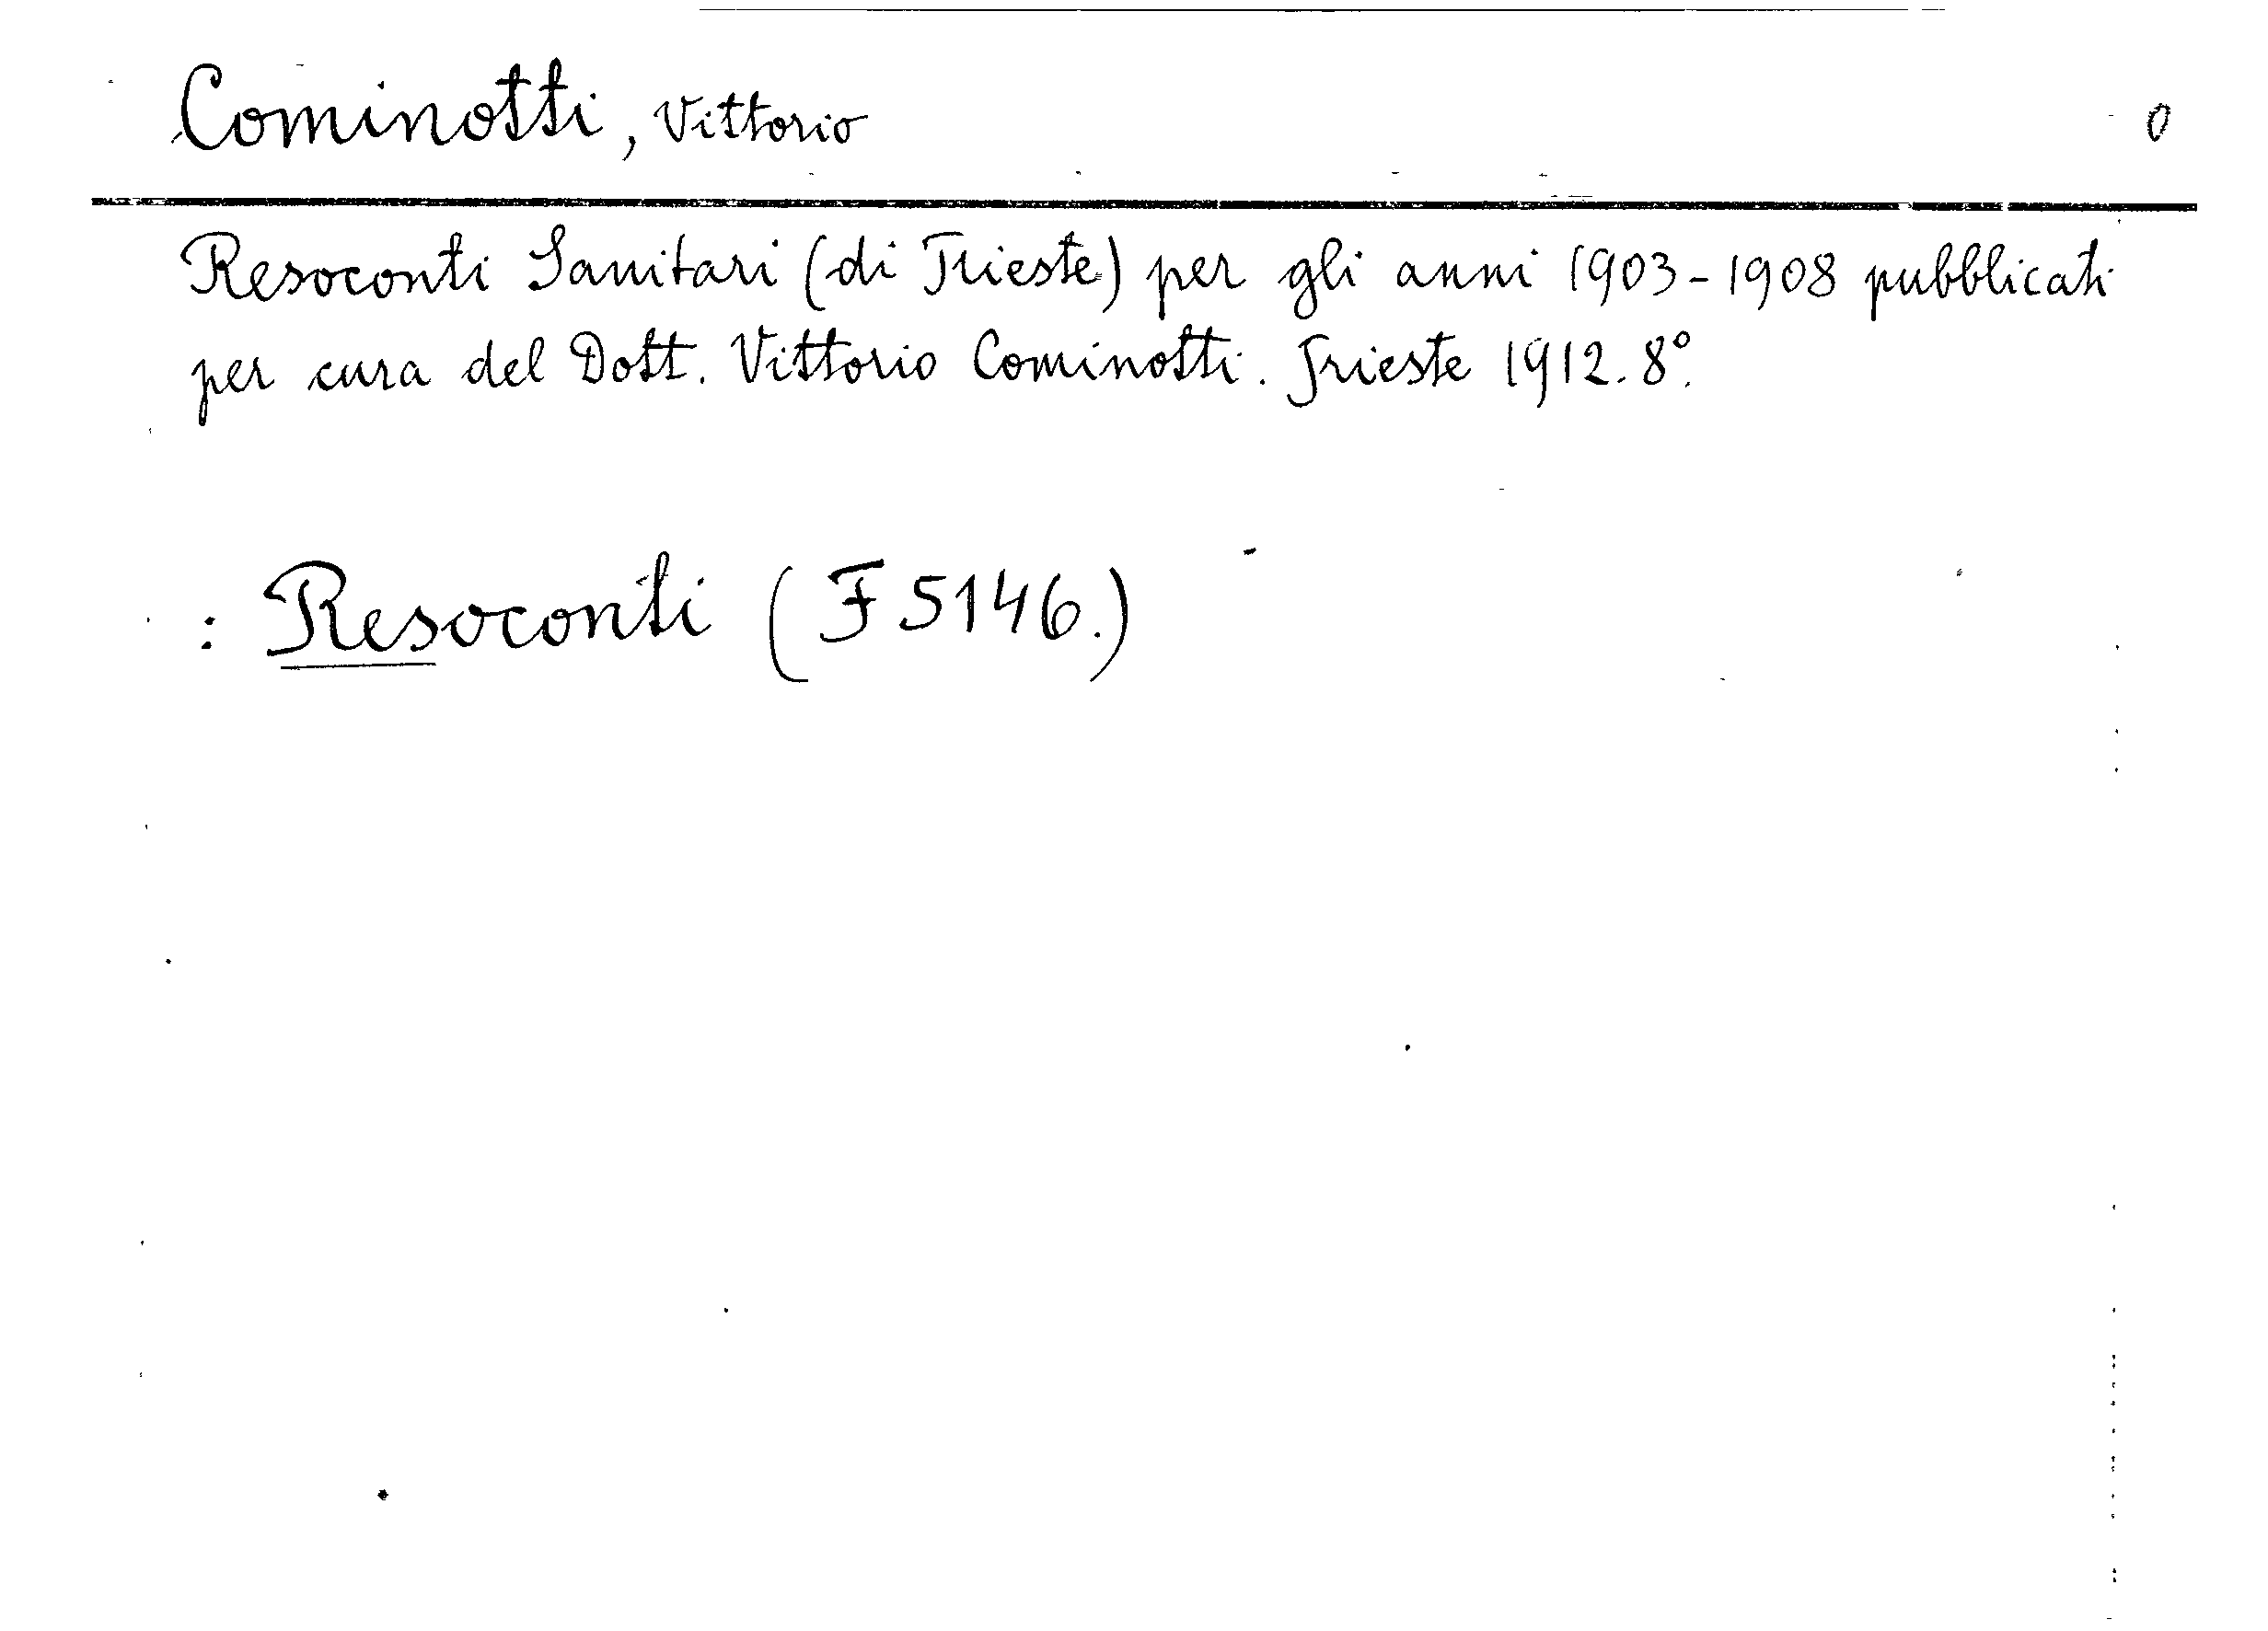 Cominotti, Vittorio 0
Resoconti Sanitari (di Trieste) per gli anni 1903-1908 pubblicati
per cura del Dott. Vittorio Cominotti. Trieste 1912. 8°.
: Resoconti (F 5146.)